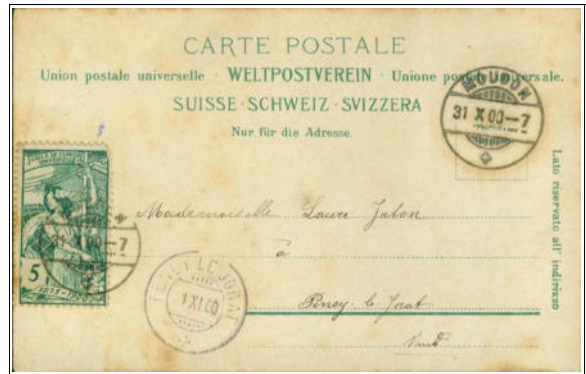 CARTE POSTALE
Union postale universelle · WELTPOSTVEREIN · Unione postale universale.
SUISSE · SCHWEIZ · SVIZZERA
Nur für die Adresse.
MOUDON
31 X 00–7
Lato riservato all' indirizzo
Mademoiselle Laure Jaton
à
31 X 00–7
5
1875-1900
LE JORAT
1 XI 00
Vaud